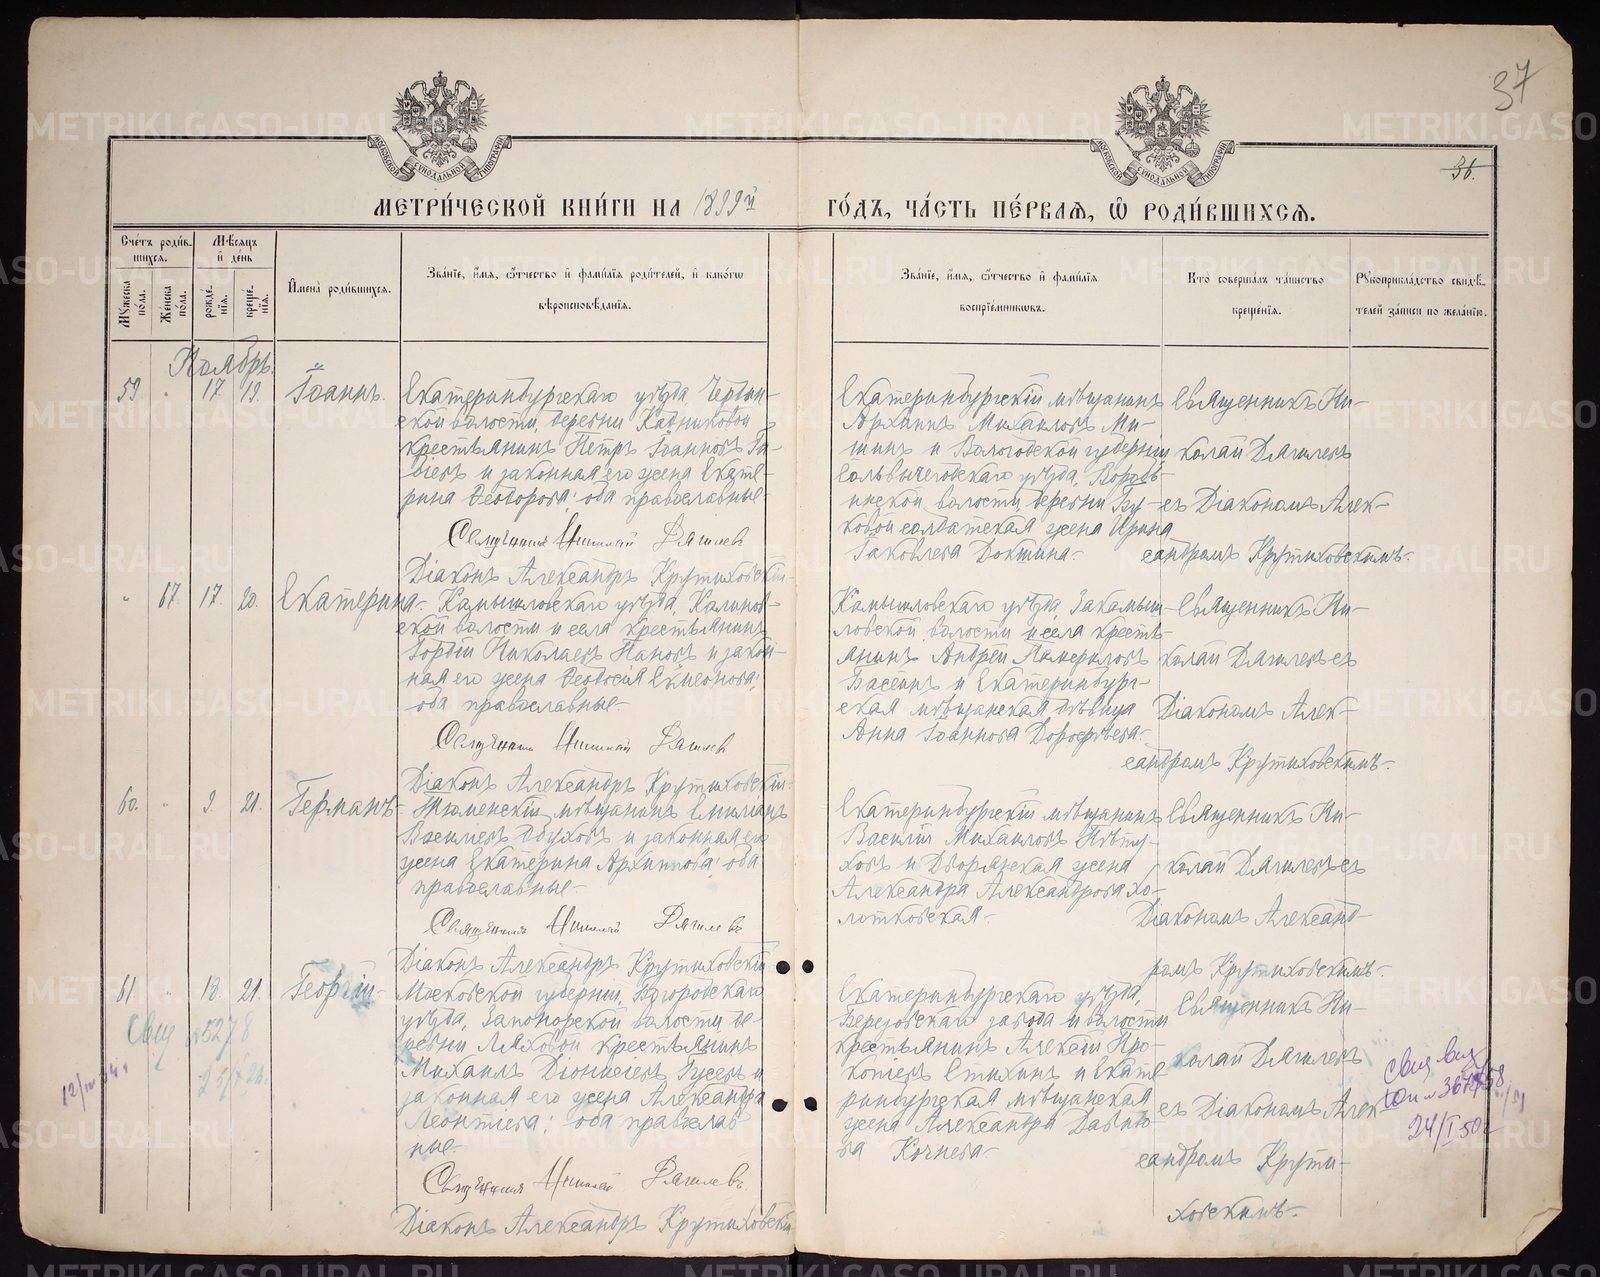 37
36.
МЕТРИ́ЧЕСКОЙ КНИ́ГИ НА 1899й ГО́ДЪ, ЧА́СТЬ ПЕ́РВАѦ, Ѡ РОДИ́ВШИХСѦ.
Сче́тъ роди́вшихсѧ.
Мꙋжеска по́ла.
Женска по́ла.
Мѣ́сѧцъ и҆ де́нь
рожде́нїѧ.
креще́нїѧ.
И҆мена̀ роди́вшихсѧ.
Зва́нїе, и҆́мѧ, ѻ҆́тчество и҆ фами́лїѧ роди́телей, и҆ како́гѡ
вѣроисповѣ́данїѧ.
Зва́нїе, и҆́мѧ, ѻ҆́тчество и҆ фами́лїѧ
воспрїе́мникѡвъ.
Кто̀ соверша́лъ та́инство
креще́нїѧ.
Рꙋкоприкла́дство свидѣ́-
телей за́писи по жела́нїю.
Ноябрь.
59 " 17 19. Іоаннъ.
Екатеринбургскаго уѣзда,
ской волости, деревни
крестьянинъ Петръ Іоанновъ
и законная его жена Екате-
рина Ѳеодорова; оба православные.-
Священникъ Николай Дягилевъ
Діаконъ Александръ Крутиховскій.
Екатеринбургскій мѣщанинъ
Архипъ Михаиловъ Ми-
шинъ и Вологодской губерніи
Сольвычегодскаго уѣзда,
волости деревни Бу-
ковой солдатская жена Ирина
Іаковлева Докшина.-
Священникъ Ни-
колай Дягилевъ
съ Діакономъ Алек-
сандромъ Крутиховскимъ.-
" 67 17. 20. Екатерина.-
Камышловскаго уѣзда, Калинов-
ской волости и села крестьянинъ
Гордій Николаевъ Пановъ и закон-
ная его жена Ѳеодосія Сѵмеонова;
оба православные.-
Священникъ Николай Дягилевъ
Діаконъ Александръ Крутиховскій.-
Камышловскаго уѣзда, Закамыш-
ловской волости и села кресть-
янинъ Андрей
и Екатеринбург-
ская мѣщанская дѣвица
Анна Іоаннова Дорофеева.-
Священникъ Ни-
колай Дягилевъ съ
Діакономъ Алек-
сандромъ Крутиховскимъ.-
60. " 9. 21. Германъ.-
Тюменскій мѣщанинъ Емиліанъ
Васильевъ Обуховъ и законная его
жена Екатерина Архиппова; оба
православные.-
Священникъ Николай Дягилевъ
Діаконъ Александръ Крутиховскій
Екатеринбургскій мѣщанинъ
Василій Михаиловъ Пѣту-
ховъ и Дворянская жена
Александра Александрова Хо-
лотковская.-
Священникъ Ни-
колай Дягилевъ съ
Діакономъ Александ-
ромъ Крутиховскимъ.-
61 " 18. 21. Георгій.-
Московской губерніи, Богородскаго
уѣзда, Запонорской волости де-
ревни Ляховой крестьянинъ
Михаилъ Діонисіевъ Гусевъ и
законная его жена Александра
Леонтіева; оба православ-
ные.-
Священникъ Николай Дягилевъ
Діаконъ Александръ Крутиховскій
Екатеринбургскаго уѣзда,
Березовскаго завода и волости
крестьянинъ Алексій Про-
копіевъ Стихинъ и Екате-
ринбургская мѣщанская
жена Александра Давидо-
ва Кочнева.-
Священникъ Ни-
колай Дягилевъ
съ Діакономъ Алек-
сандромъ Крути-
ховскимъ.-
№5278
24/I 50 г